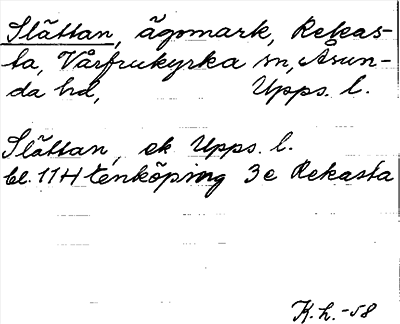 Slättan, ägomark, Rekas-
ta, Vårfrukyrka sn, Åsun-
da hd, Upps. l.
Slättan, ek Upps. l.
bl. 11 H Enköping 3 e Rekasta
K. h. -58